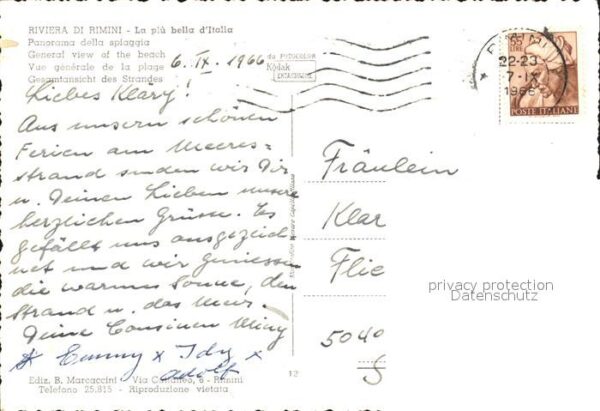 RIVIERA DI RIMINI - La più bella d'Italia
Panorama della spiaggia
General view of the beach
Vue générale de la plage
Gesamtansicht des Strandes
6. IX. 1966
da FOTOCOLOR
Kodak
EKTACHROME
55
LIRE
22-23
7-IX
1966
POSTE ITALIANE
Liebes Klary!
Aus unsern schönen
Ferien am Meeres-
strand senden wir Dir
u. Deinen Lieben unsere
herzlichen Grüsse. Es
gefällt uns ausgezeich
net und wir geniessen
die warme Sonne, den
Strand u. das Meer.
Deine Cousinen Miny
Emmy x Idy x
Adolf
Fräulein
Klar
Flie
5040
privacy protection
Datenschutz
12
Ediz. B. Marcaccini - Via Cattaneo, 6 - Rimini
Telefono 25.815 - Riproduzione vietata